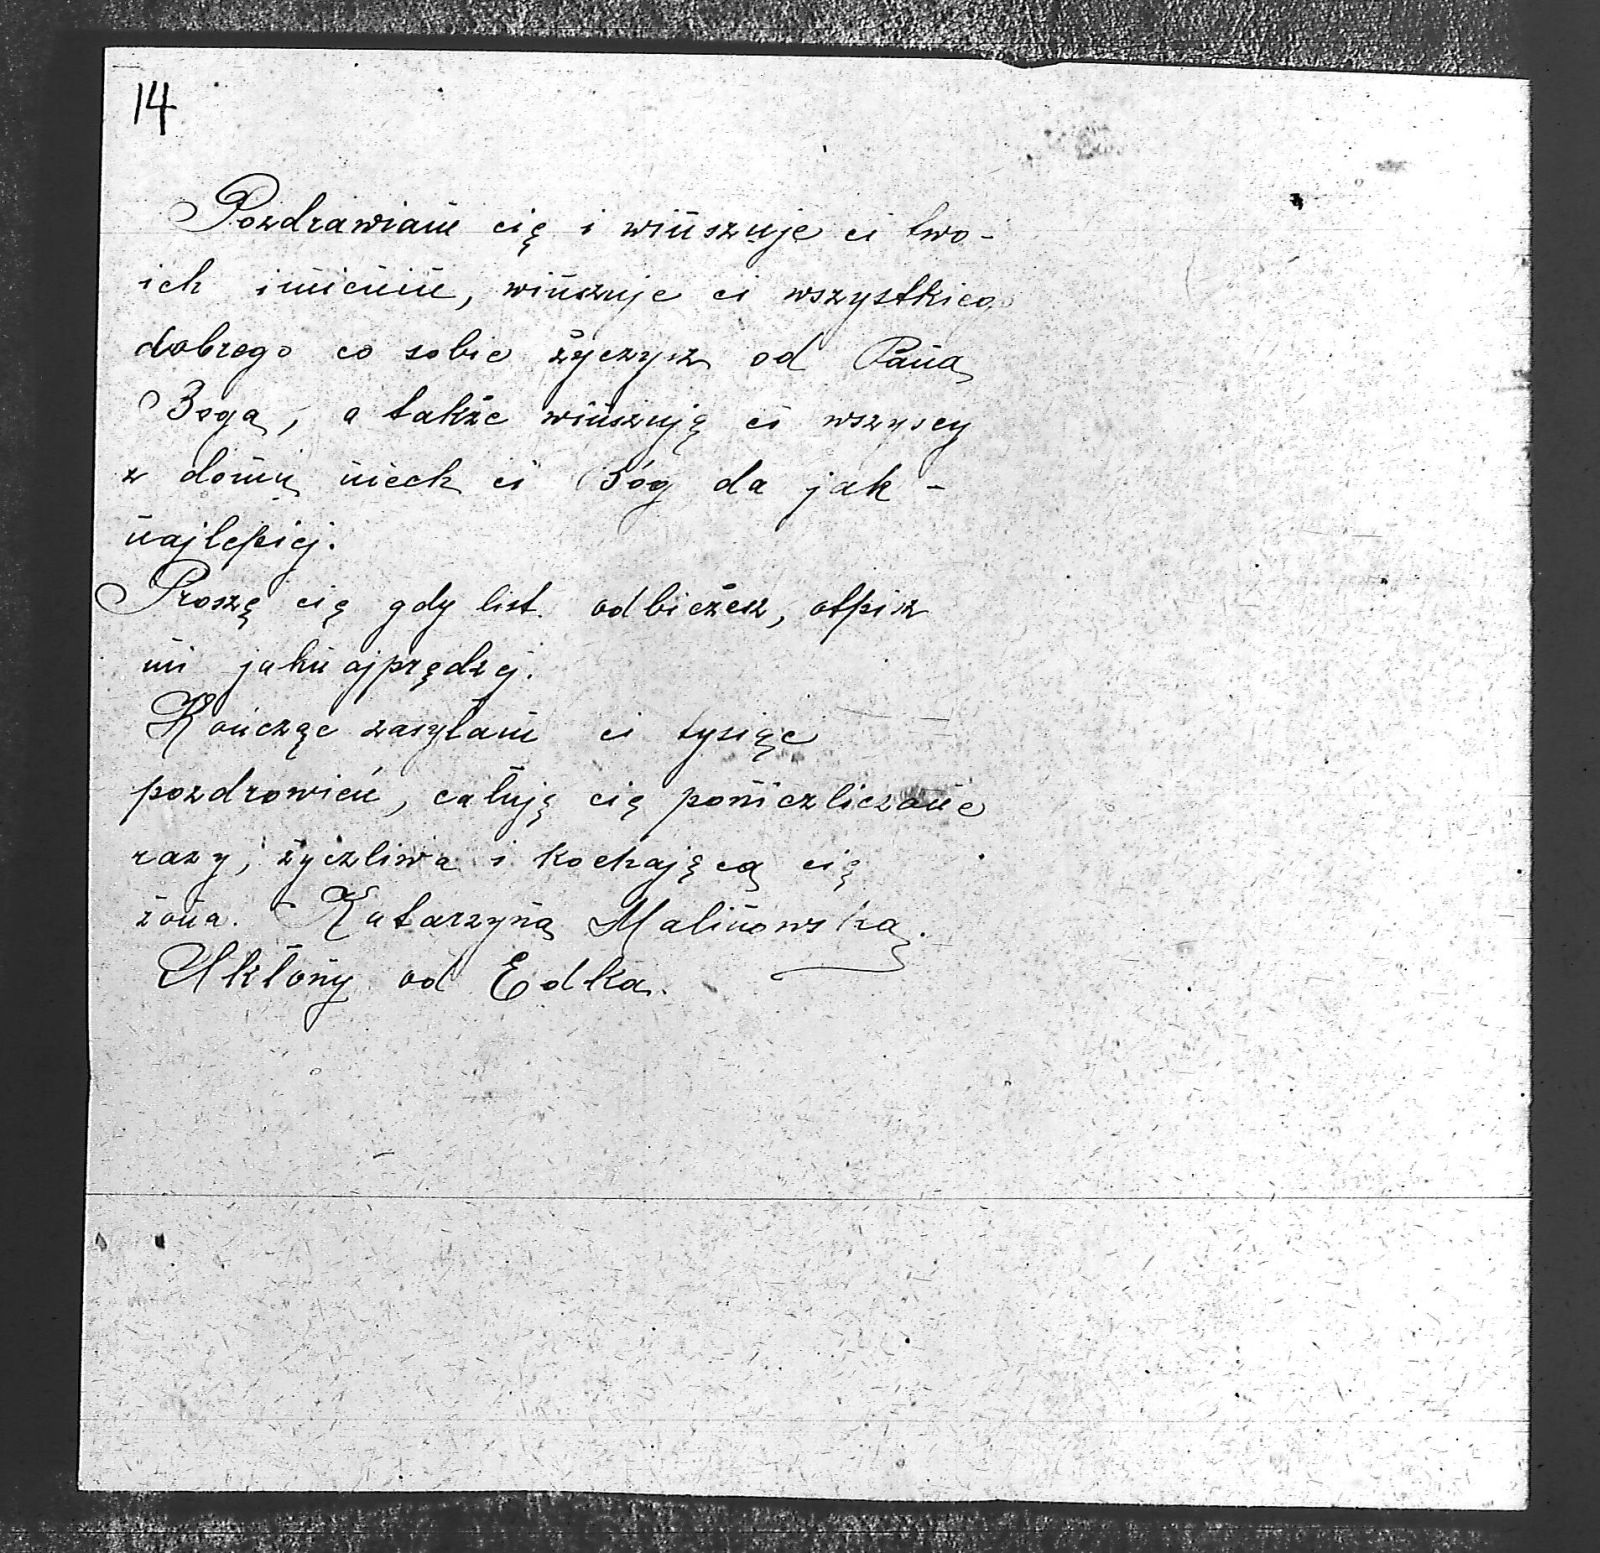 14
Pozdrawiam cię i winszuje ci two-
ich imienin, winszuje ci wszystkiego
dobrego co sobie życzysz od Pana
Boga, a także winszują ci wszyscy
z domu niech ci Bóg da jak-
najlepiej.
Proszę cię gdy list odbieżesz, otpisz
mi jaknajprędzej.
Kończąc zasyłam ci tysiąc
pozdrowień, całują cię poniezliczone
razy, życzliwa i kochająca cię
żona. Katarzyna Malinowska.
Ukłony od Edka.